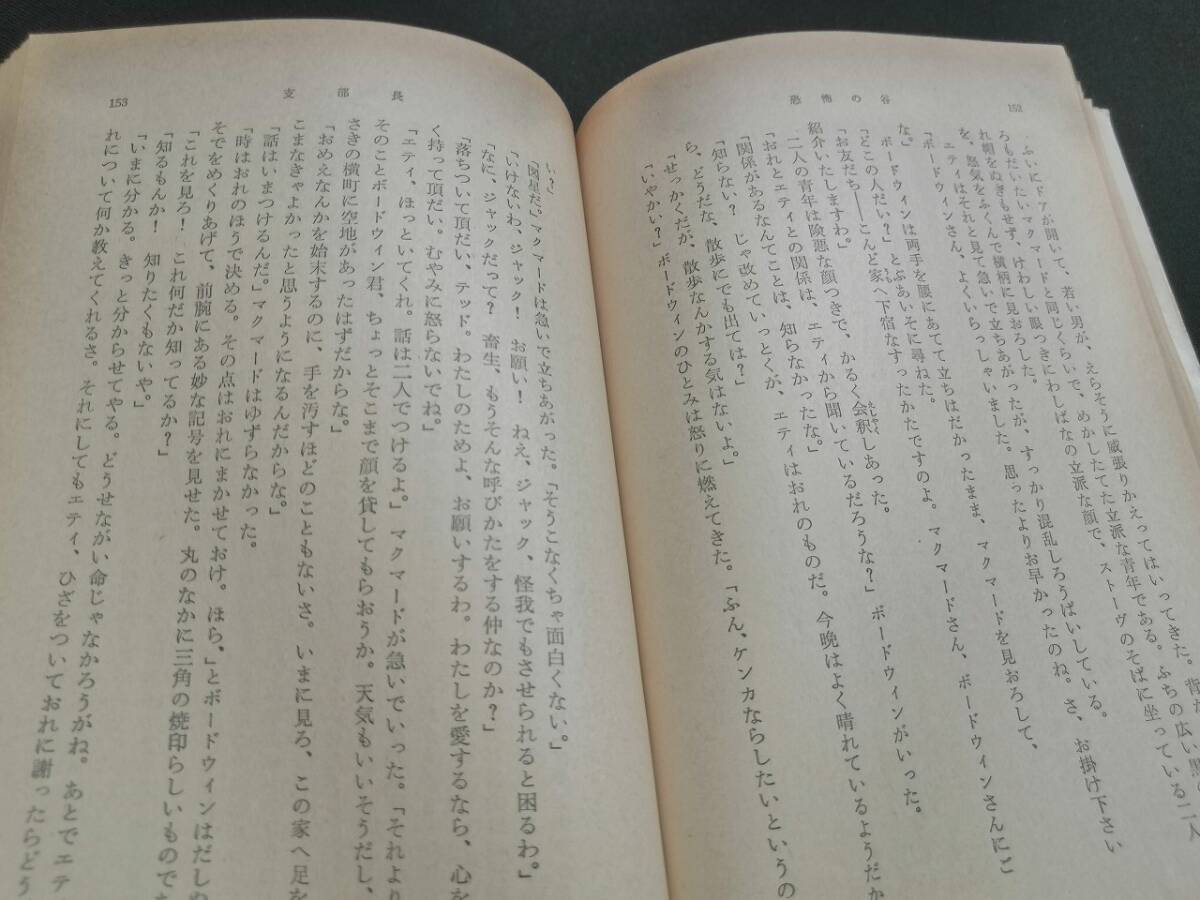 152
恐怖の谷
ふいにドアが開いて、若い男が、えらそうに威張りかえってはいってきた。背
ろもだいたいマクマードと同じくらいで、めかしたてた立派な青年である。ふちの広い黒の
れ帽をぬぎもせず、けわしい眼つきにわしばなの立派な顔で、ストーヴのそばに坐っている二人
を、怒気をふくんで横柄に見おろした。
エティはそれと見て急いで立ちあがったが、すっかり混乱しろうばいしている。
「ボードウィンさん、よくいらっしゃいました。思ったよりお早かったのね。さ、お掛け下さい
な」
ボードウィンは両手を腰にあてて立ちはだかったまま、マクマードを見おろして、
「どこの人だい？」とぶあいそに尋ねた。
「お友だち――こんど家へ下宿なすったかたですのよ。マクマードさん、ボードウィンさんにご
紹介いたしますわ」
二人の青年は険悪な顔つきで、かるく会釈しあった。
えしゃく
「おれとエティとの関係は、エティから聞いているだろうな？」ボードウィンがいった。
「関係があるなんてことは、知らなかったな」
「知らない？　じゃ改めていっとくが、エティはおれのものだ。今晩はよく晴れているようだか
ら、どうだな、散歩にでも出ては？」
「せっかくだが、散歩なんかする気はないよ」
「いやかい？」ボードウィンのひとみは怒りに燃えてきた。「ふん、ケンカならしたいというの
153
支部長
い？」
「図星だ」マクマードは急いで立ちあがった。「そうこなくちゃ面白くない。」
「いけないわ、ジャック！　お願い！　ねえ、ジャック、怪我でもさせられると困るわ。」
「なに、ジャックだって？　畜生、もうそんな呼びかたをする仲なのか？」
「落ちついて頂だい、テッド。わたしのためよ、お願いするわ。わたしを愛するなら、心を
く持って頂だい。むやみに怒らないでね」
「エティ、ほっといてくれ。話は二人でつけるよ」マクマードが急いでいった。「それより
そのことボードウィン君、ちょっとそこまで顔を貸してもらおうか。天気もいいそうだし、
さきの横町に空地があったはずだからな」
「おめえなんかを始末するのに、手を汚すほどのこともないさ。いまに見ろ、この家へ足を
こまなきゃよかったと思うようになるんだからな」
「話はいまつけるんだ」マクマードはゆずらなかった。
「時はおれのほうで決める。その点はおれにまかせておけ。ほら、」とボードウィンはだしぬ
そでをめくりあげて、前腕にある妙な記号を見せた。丸のなかに三角の焼印らしいもので
「これを見ろ！　これ何だか知ってるか？」
「知るもんか！　知りたくもないや」
「いまに分かる。きっと分からせてやる。どうせながい命じゃなかろうがね。あとでエテ
れについて何か教えてくれるさ。それにしてもエティ、ひざをついておれに謝ったらどう